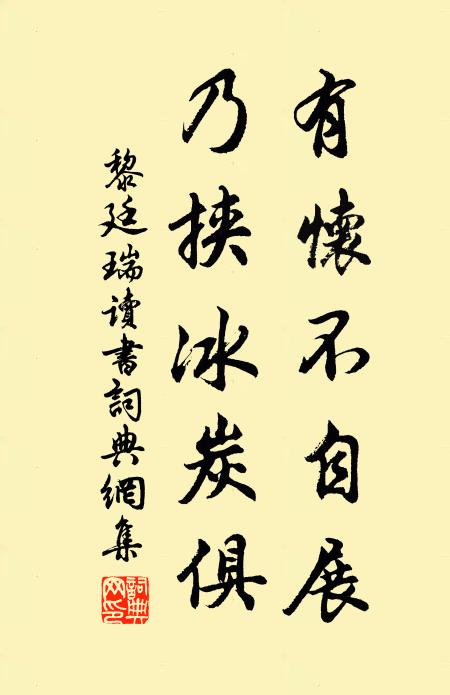 有懷不自展
乃挾冰炭俱
黎廷瑞讀書詞典網集
詞典網印